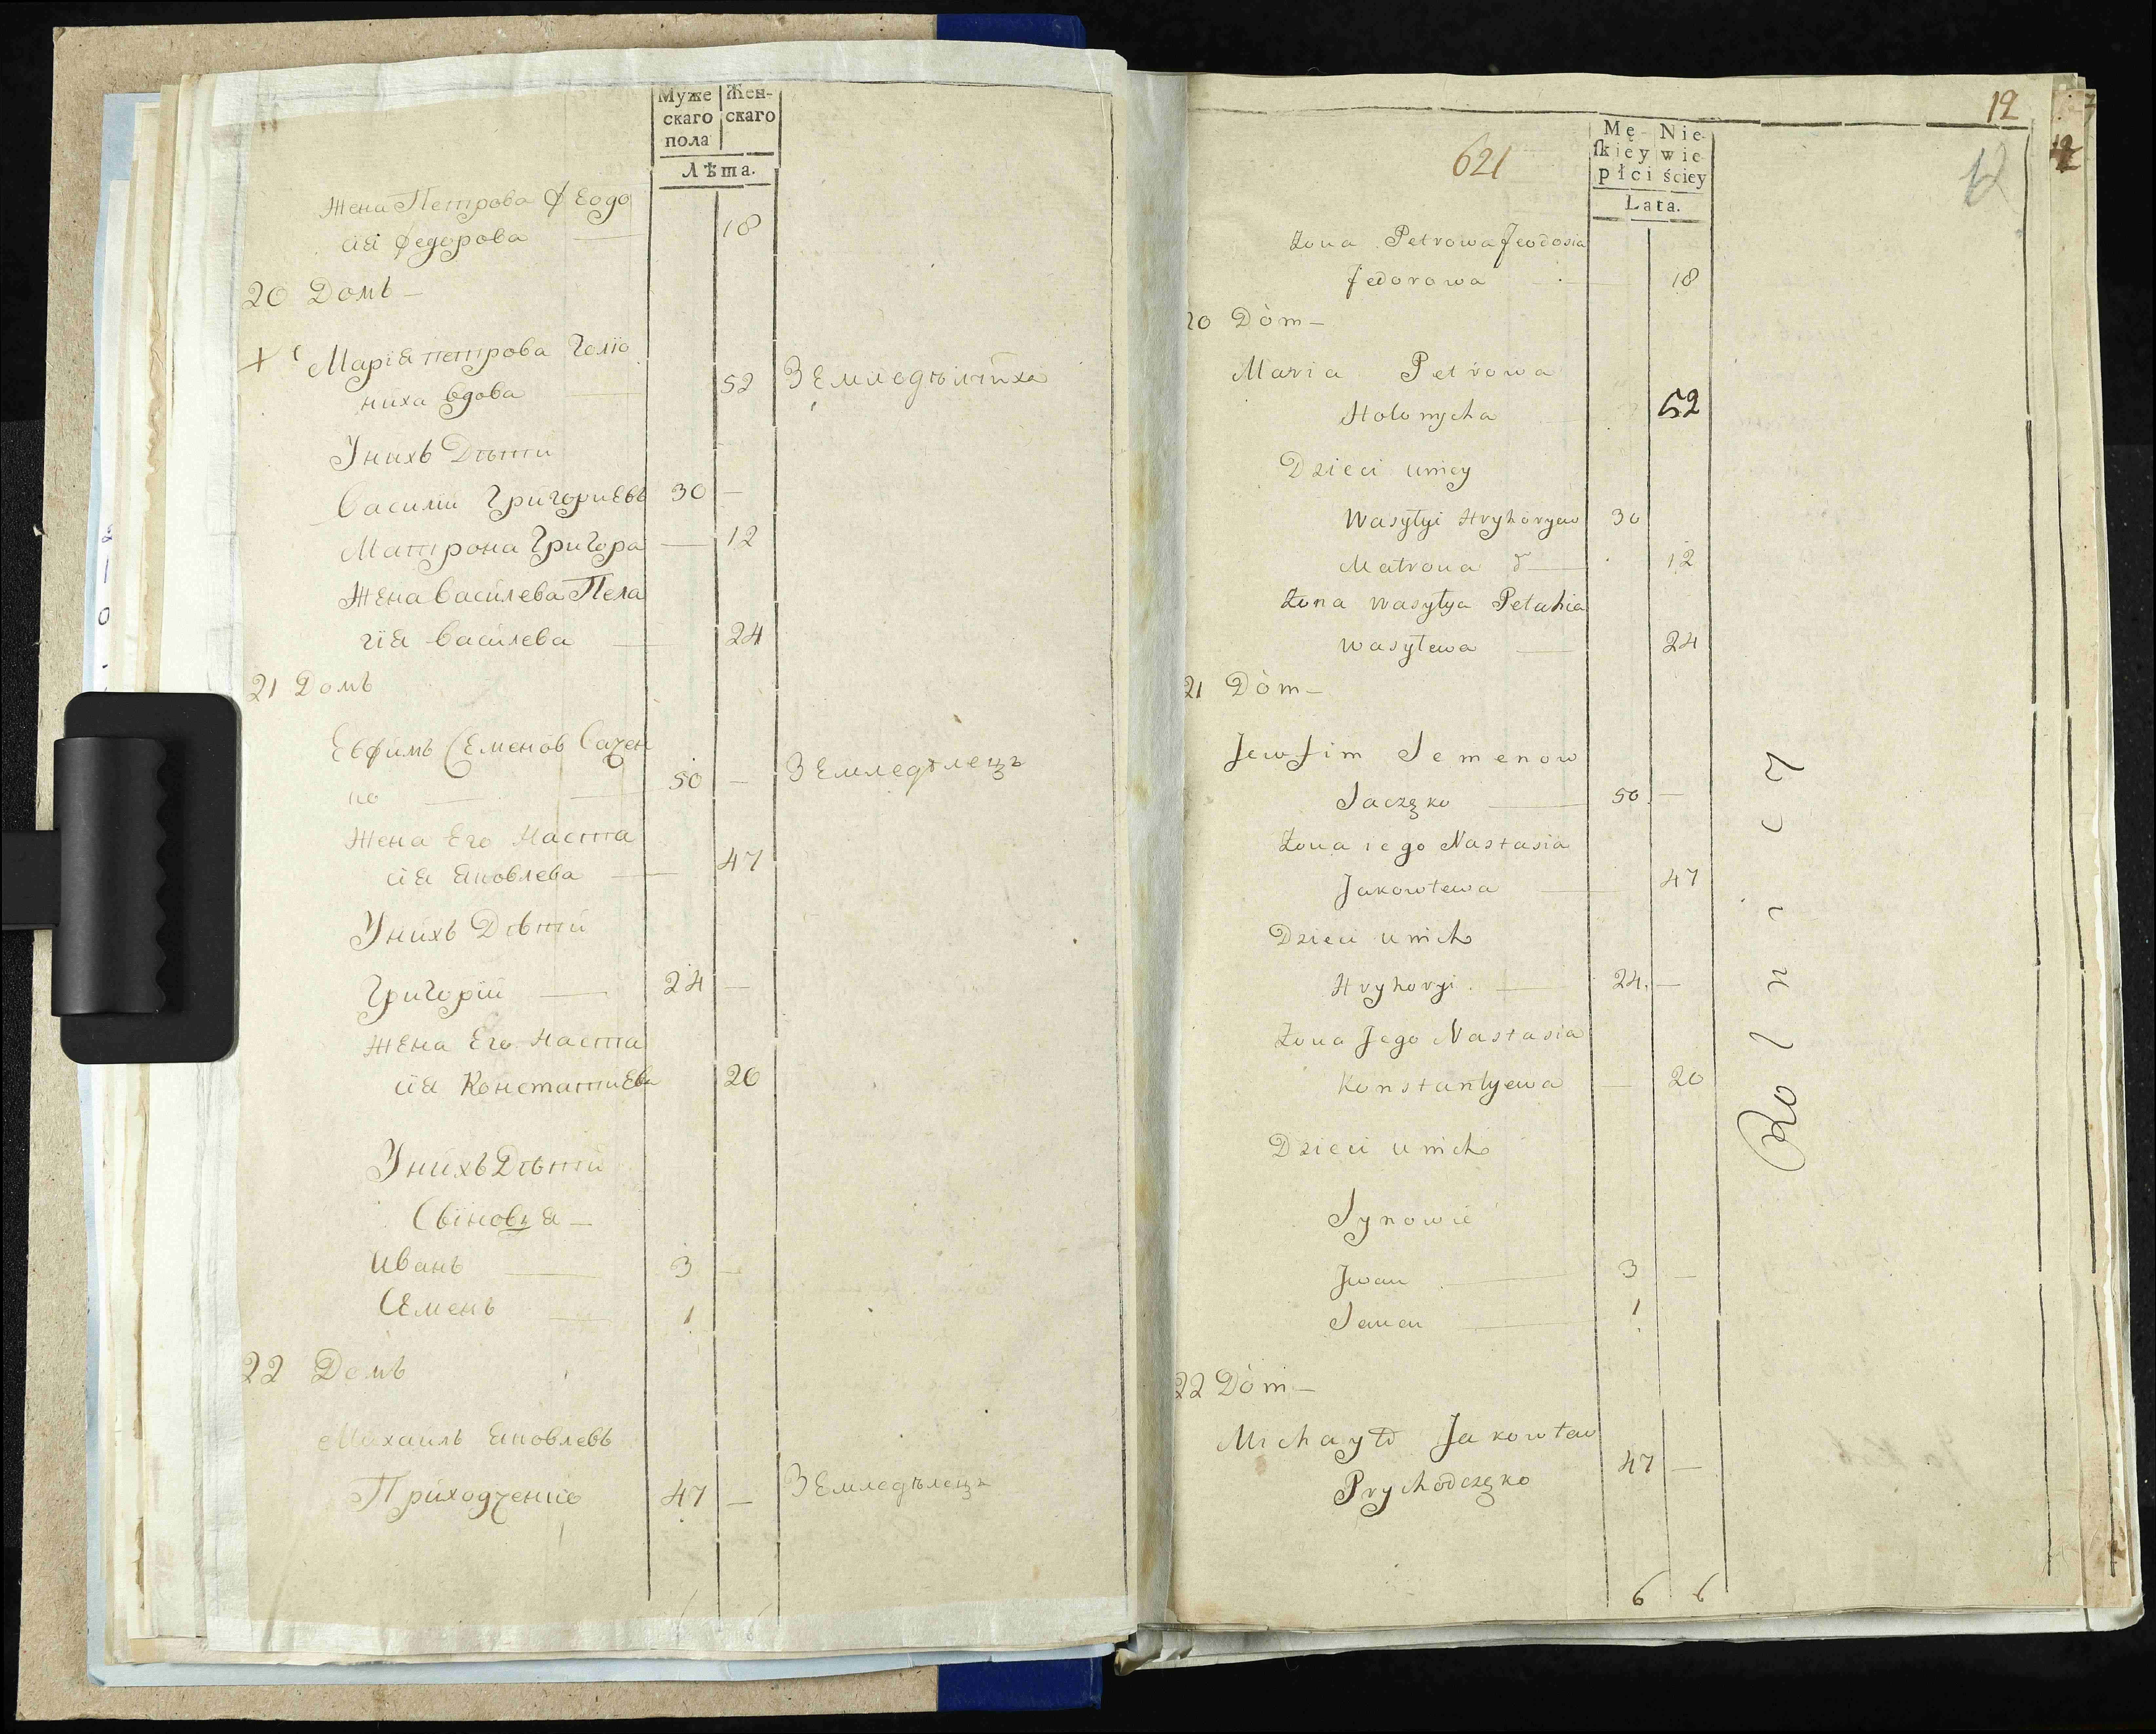 Муже Жен-
скаго скаго
пола
Лѣта.
Жена Петрова Ѳеодо
сія Федорова — 18
20 Домъ —
+ Марія петрова Голіо
ниха вдова — 52 Земледѣлчиха
У нихъ Дѣти
Василій Григориевъ 30 —
Матрона Григора — 12
Жена Василева Пела
гія Василева — 24
21 Домъ
Евфимъ Семенов Сачен
ко — 50 — Земледѣлецъ
Жена Его Наста
сія Яковлева — 47
У нихъ Дѣти
Григорій — 24 —
Жена Его Наста
сія Констатиева 20
У нихъ Дѣти
Сыновья —
Иванъ — 3 —
Семенъ — 1
22 Домъ
Михаилъ Яковлевъ
Приходченко 47 — Земледѣлецъ
6 6
12
621
12
Mę- Nie-
ſkiey wie-
płci ściey
Lata.
Żona Petrowa Feodosia
Fedorowa — 18
20 Dòm —
Maria Petrowa
Holonycha 52
Dzieci u niey
Wasyłyi Hryhoryew 30
Matrona d — 12
Żona Wasyłya Pełahia
Wasyłewa — 24
21 Dòm —
Jewfim Semenow
Saczęko — 50 —
Żona iego Nastasia
Jakowłewa — 47
Dzieci u nich
Hryhoryi — 24 —
Żona Jego Nastasia
Konstantyewa — 20
Dzieci u nich
Synowie
Jwan — 3 —
Seman — 1
22 Dòm —
Michayło Jakowław
Prychodczęko 47 —
Rolnicy
6 6